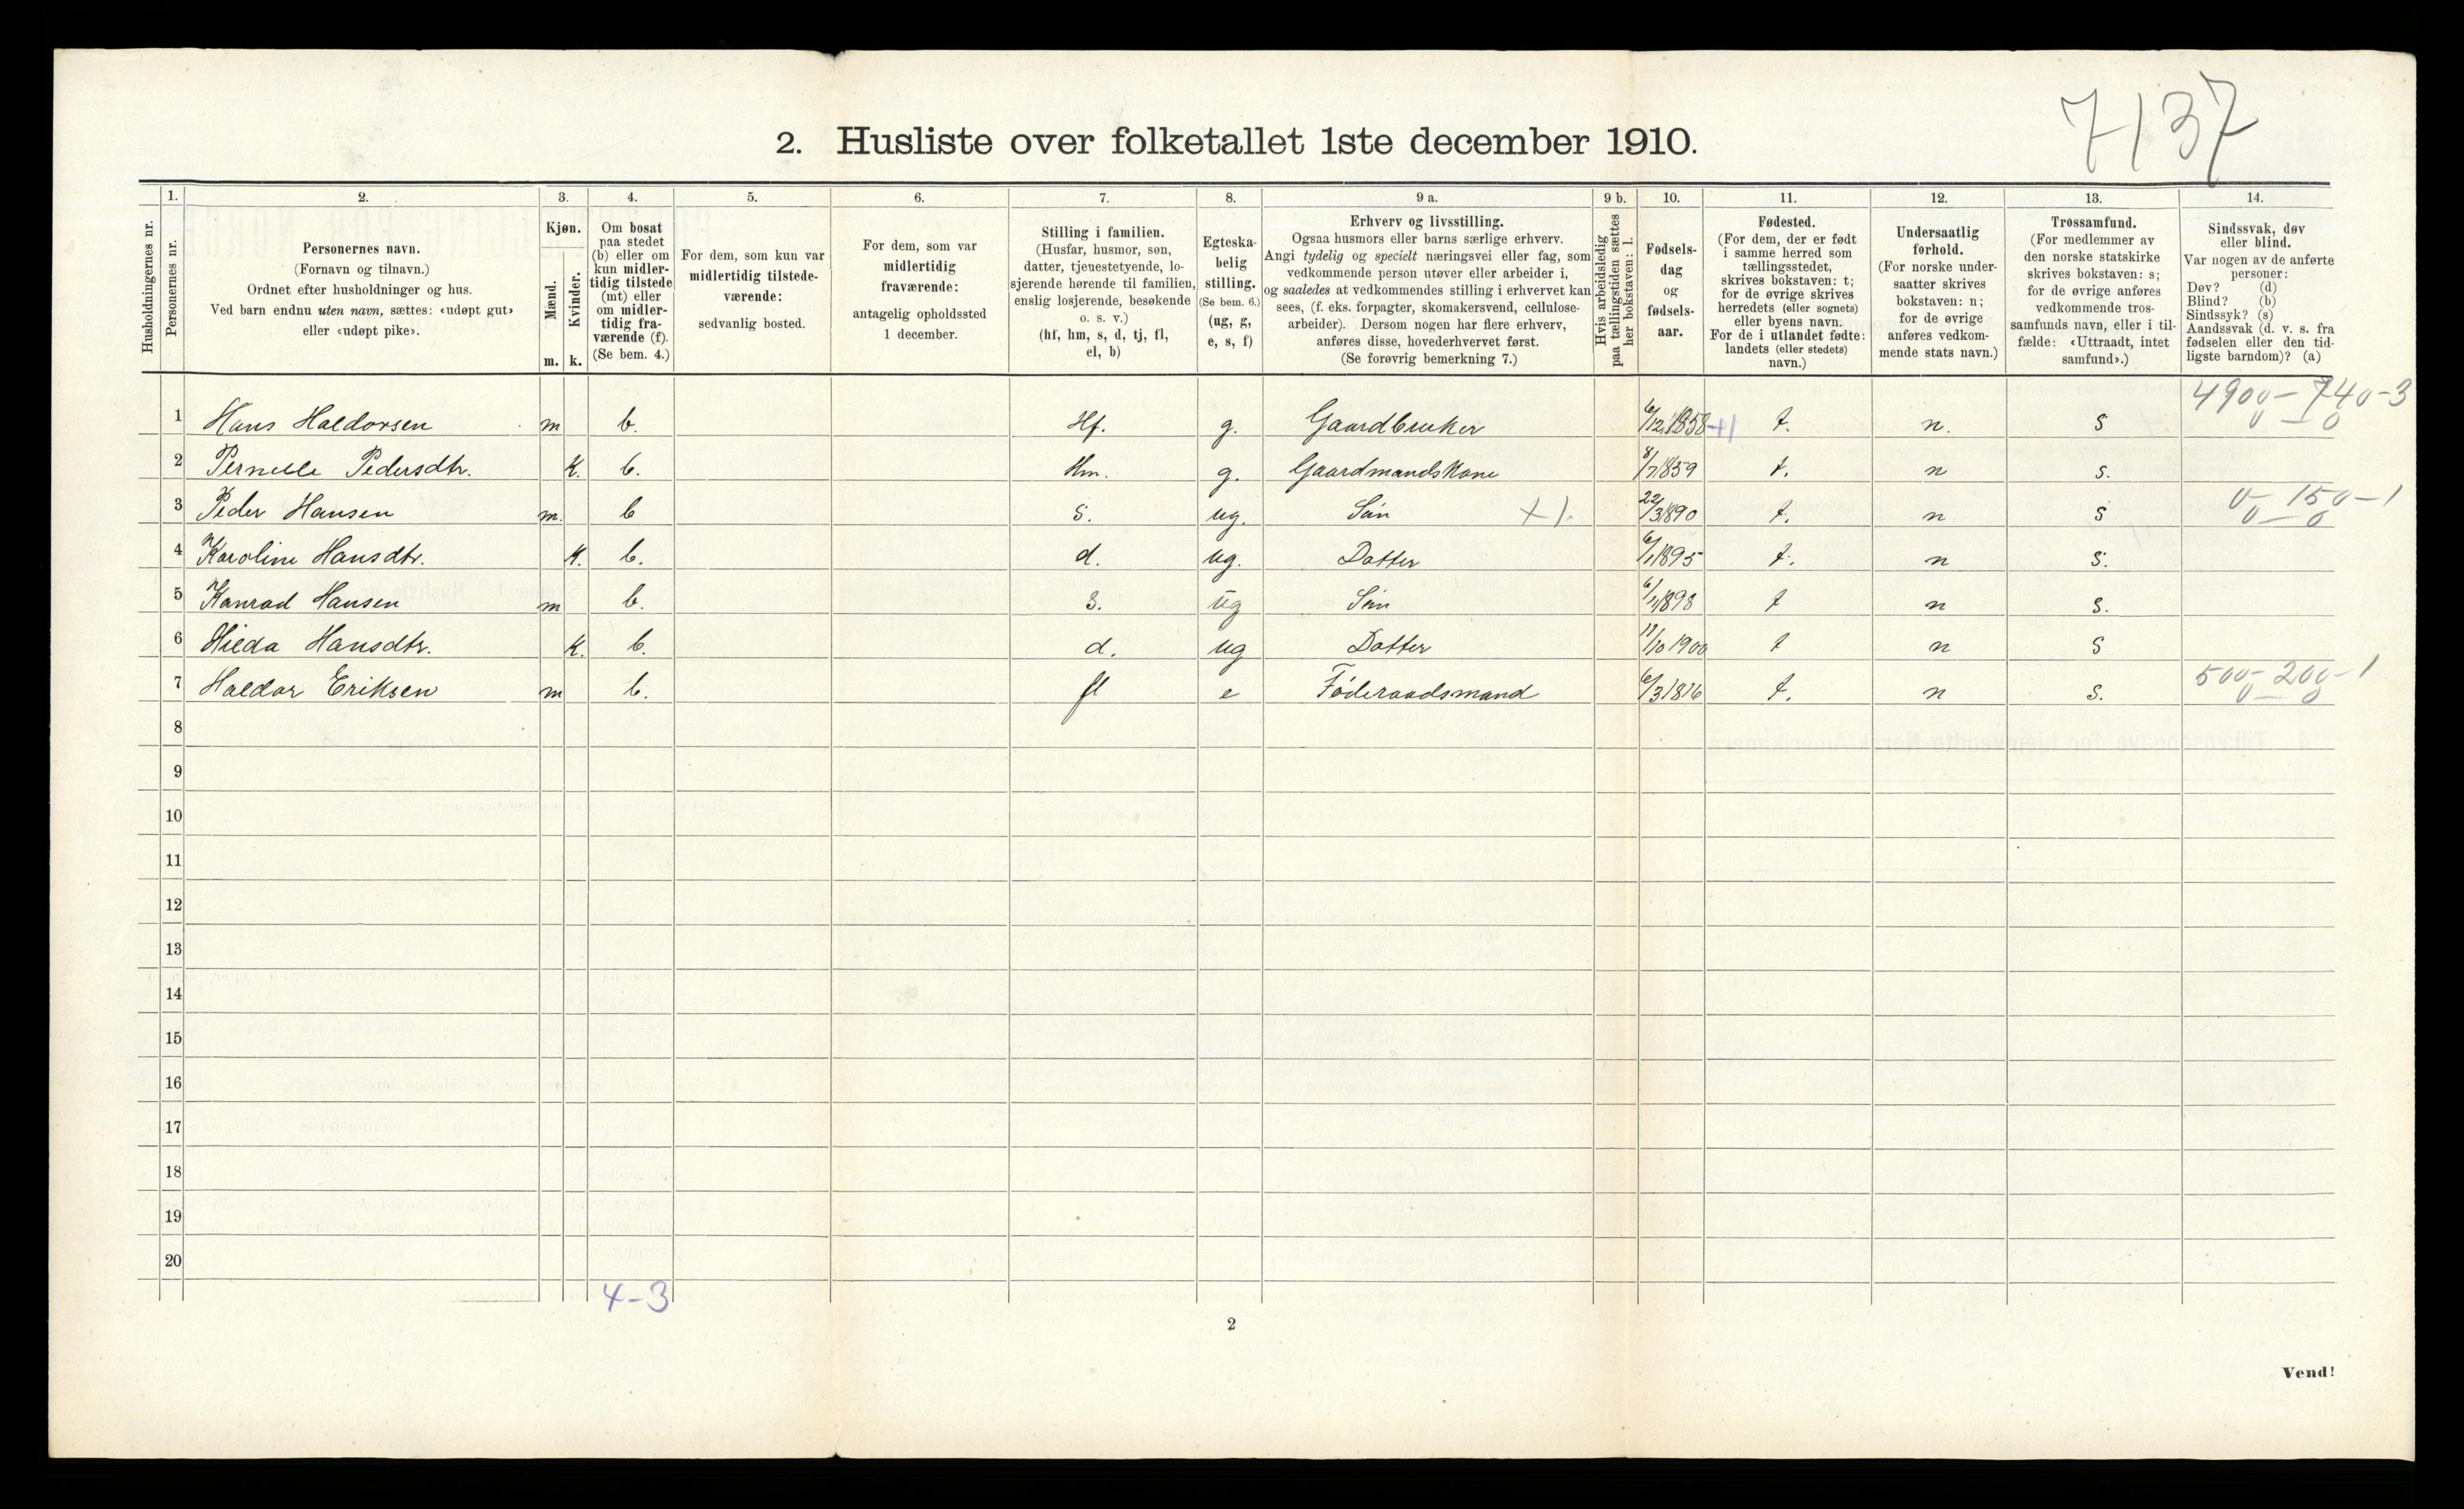 7137
2. Husliste over folketallet 1ste december 1910.
Husholdningernes nr.
1.
Personernes nr.
2.
Personernes navn.
(Fornavn og tilnavn.)
Ordnet efter husholdninger og hus.
Ved barn endnu uten navn, sættes: «udøpt gut»
eller «udøpt pike».
3.
Kjøn.
Mænd.
m.
Kvinder.
k.
4.
Om bosat
paa stedet
(b) eller om
kun midler-
tidig tilstede
(mt) eller
om midler-
tidig fra-
værende (f).
(Se bem. 4.)
5.
For dem, som kun var
midlertidig tilstede-
værende:
sedvanlig bosted.
6.
For dem, som var
midlertidig
fraværende:
antagelig opholdssted
1 december.
7.
Stilling i familien.
(Husfar, husmor, søn,
datter, tjenestetyende, lo-
sjerende hørende til familien,
enslig losjerende, besøkende
o. s. v.)
(hf, hm, s, d, tj, fl,
el, b)
8.
Egteska-
belig
stilling.
(Se bem. 6.)
(ug, g,
e, s, f)
9 a.
Erhverv og livsstilling.
Ogsaa husmors eller barns særlige erhverv.
Angi tydelig og specielt næringsvei eller fag, som
vedkommende person utøver eller arbeider i,
og saaledes at vedkommendes stilling i erhvervet kan
sees, (f. eks. forpagter, skomakersvend, cellulose-
arbeider). Dersom nogen har flere erhverv,
anføres disse, hovederhvervet først.
(Se forøvrig bemerkning 7.)
9 b.
Hvis arbeidsledig
paa tællingstiden sættes
her bokstaven: l.
10.
Fødsels-
dag
og
fødsels-
aar.
11.
Fødested.
(For dem, der er født
i samme herred som
tællingsstedet,
skrives bokstaven: t;
for de øvrige skrives
herredets (eller sognets)
eller byens navn.
For de i utlandet fødte:
landets (eller stedets)
navn.)
12.
Undersaatlig
forhold.
(For norske under-
saatter skrives
bokstaven: n;
for de øvrige
anføres vedkom-
mende stats navn.)
13.
Trossamfund.
(For medlemmer av
den norske statskirke
skrives bokstaven: s;
for de øvrige anføres
vedkommende tros-
samfunds navn, eller i til-
fælde: «Uttraadt, intet
samfund».)
14.
Sindssvak, døv
eller blind.
Var nogen av de anførte
personer:
Døv? (d)
Blind? (b)
Sindssyk? (s)
Aandssvak (d. v. s. fra
fødselen eller den tid-
ligste barndom)? (a)
4900 - 740 - 3
1 Hans Haldorsen m b. Hf. g. Gaardbruker 6/12 1858 +1 t. n. s 0 - 0
2 Pernelle Pedersdtr. K. b. Hm. g. Gaardmandskone 8/7 1859 t. n s.
0 - 150 - 1
3 Peder Hansen m. b s. ug. Søn x 1. 22/3 1890 t. n s 0 - 0
4 Karoline Hansdtr. K. b. d. ug. Datter 6/1 1895 t. n s.
5 Konrad Hansen m b. s. ug Søn 6/1 1898 t n s.
6 Hilda Hansdtr. K. b. d. ug Datter 17/10 1900 t n s
500 - 200 - 1
7 Haldor Eriksen m b. fl e Føderaadsmand 6/3 1816 t. n s. 0 - 0
8
9
10
11
12
13
14
15
16
17
18
19
20
4-3
2
Vend!